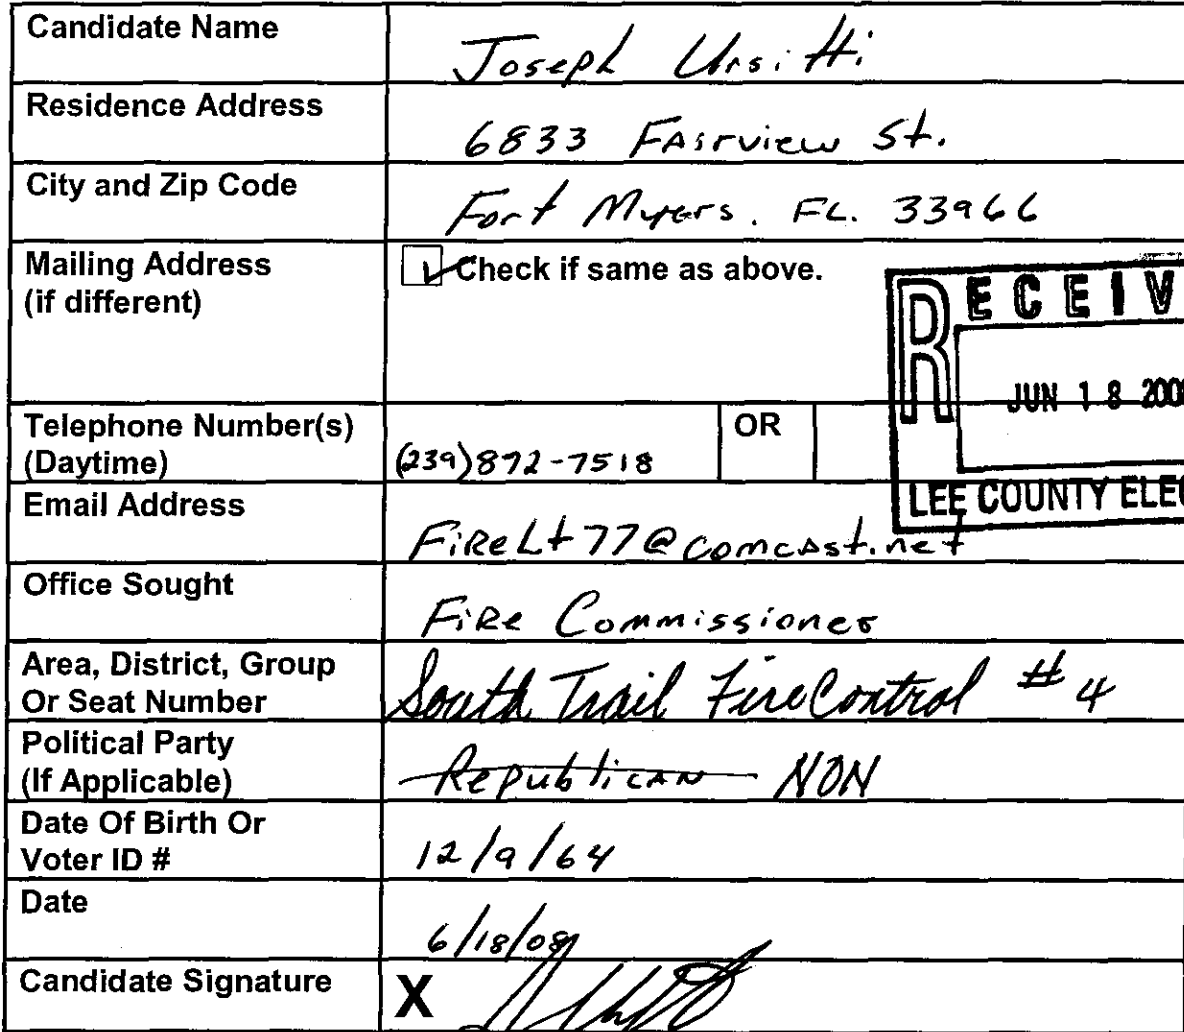 Candidate Name Joseph Ursitti
Residence Address 6833 FAirview St.
City and Zip Code Fort Myers. FL. 33966
Mailing Address
(if different)
Check if same as above.
RECEIV
JUN 18 200
LEE COUNTY ELEC
Telephone Number(s)
(Daytime)
(239)872-7518 OR
Email Address FiReLt77@comcAst.net
Office Sought FiRe Commissioner
Area, District, Group
Or Seat Number
South Trail Fire Control #4
Political Party
(If Applicable)
RepublicAN NON
Date Of Birth Or
Voter ID #
12/9/64
Date 6/18/08
Candidate Signature X